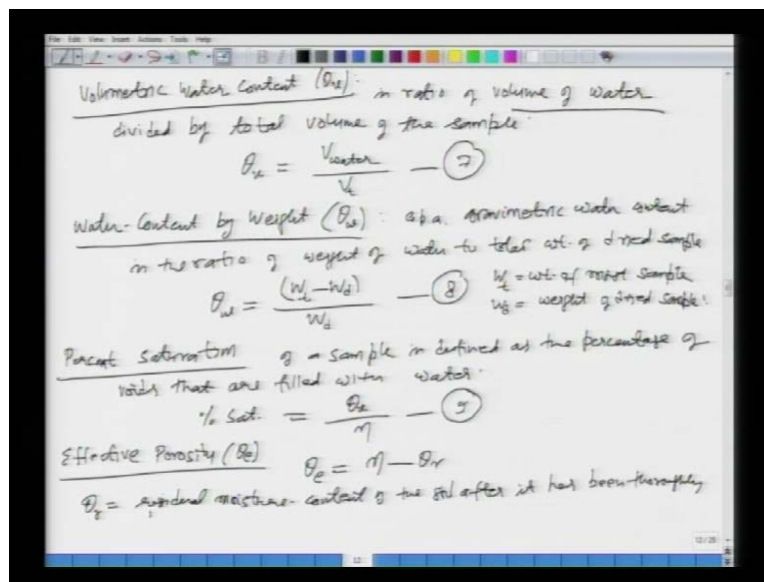 File Edit View Insert Actions Tools Help
Volumetric Water Content (θv): in ratio of volume of water
divided by total volume of the sample.
θv = Vwater / Vt — 7
Water-Content by Weight (θw): a.k.a. Gravimetric water content
in the ratio of weight of water to total wt. of dried sample
θw = (Wt - Wd) / Wd — 8
Wt = wt. of moist sample
Wd = weight of dried sample.
Percent Saturation of a sample in defined as the percentage of
voids that are filled with water.
% Sat. = θv / η — 9
Effective Porosity (θe) θe = η - θr
θr = residual moisture content of the soil after it has been thoroughly
12